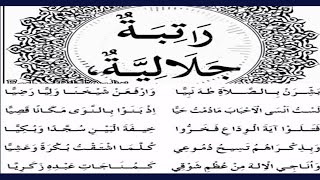 رَاتِبَةٌ
جَلَالِيَّةٌ
بَشِّرَنْ بِالصَّلَاةِ طٰهَ نَبِيًّا وَارْفَعَنْ شَيْخَنَا وَلِيًّا رَضِيًّا
لَسْتُ أَنْسَى الْأَحْبَابَ مَادُمْتُ حَيًّا إِذْ نَبَوْا بِالنَّوَى مَكَانًا قَصِيًّا
فَتَلَوْا آيَةَ الْوَدَاعِ فَخَرُّوا خِيفَةَ الْبَيْنِ سُجَّدًا وَبُكِيًّا
وَبِذِكْرَاهُمْ تَسِيحُ دُمُوعِي كُلَّمَا اشْتَقْتُ بُكْرَةً وَعَشِيًّا
وَأُنَاجِي الْإِلٰهَ مِنْ عُظْمِ شَوْقِي كَمُنَاجَاتِ عَبْدِهِ زَكَرِيًّا